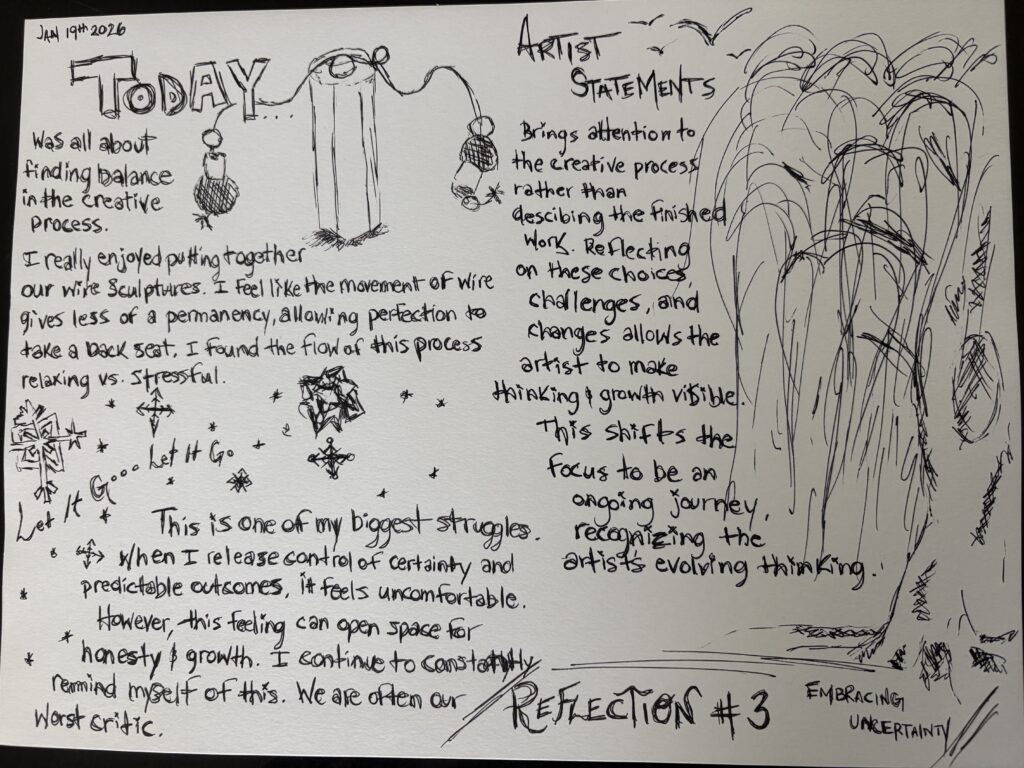 JAN 19th 2026
TODAY....
Was all about
finding balance
in the creative
process.
I really enjoyed putting together
our wire sculptures. I feel like the movement of wire
gives less of a permanency, allowing perfection to
take a back seat. I found the flow of this process
relaxing vs. stressful.
Let It Go... Let It Go
This is one of my biggest struggles.
When I release control of certainty and
predictable outcomes, it feels uncomfortable.
However, this feeling can open space for
honesty & growth. I continue to constantly
remind myself of this. We are often our
worst critic.
ARTIST
STATEMENTS
Brings attention to
the creative process
rather than
descibing the finished
work. Reflecting
on these choices,
challenges, and
changes allows the
artist to make
thinking & growth visible.
This shifts the
focus to be an
ongoing journey,
recognizing the
artists evolving thinking.
REFLECTION #3
EMBRACING
UNCERTAINTY